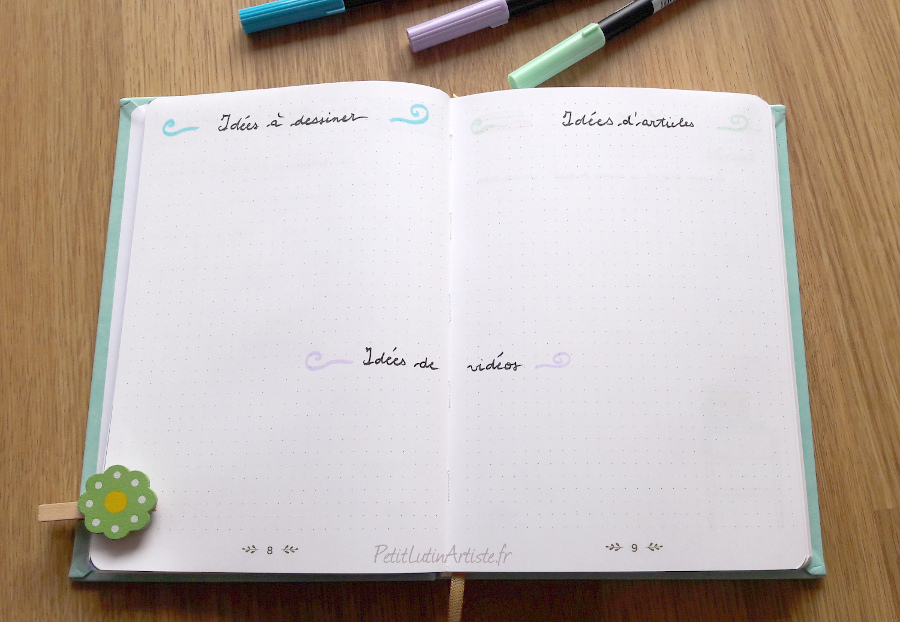 Idées à dessiner
Idées d'articles
Idées de vidéos
8
PetitLutinArtiste.fr
9